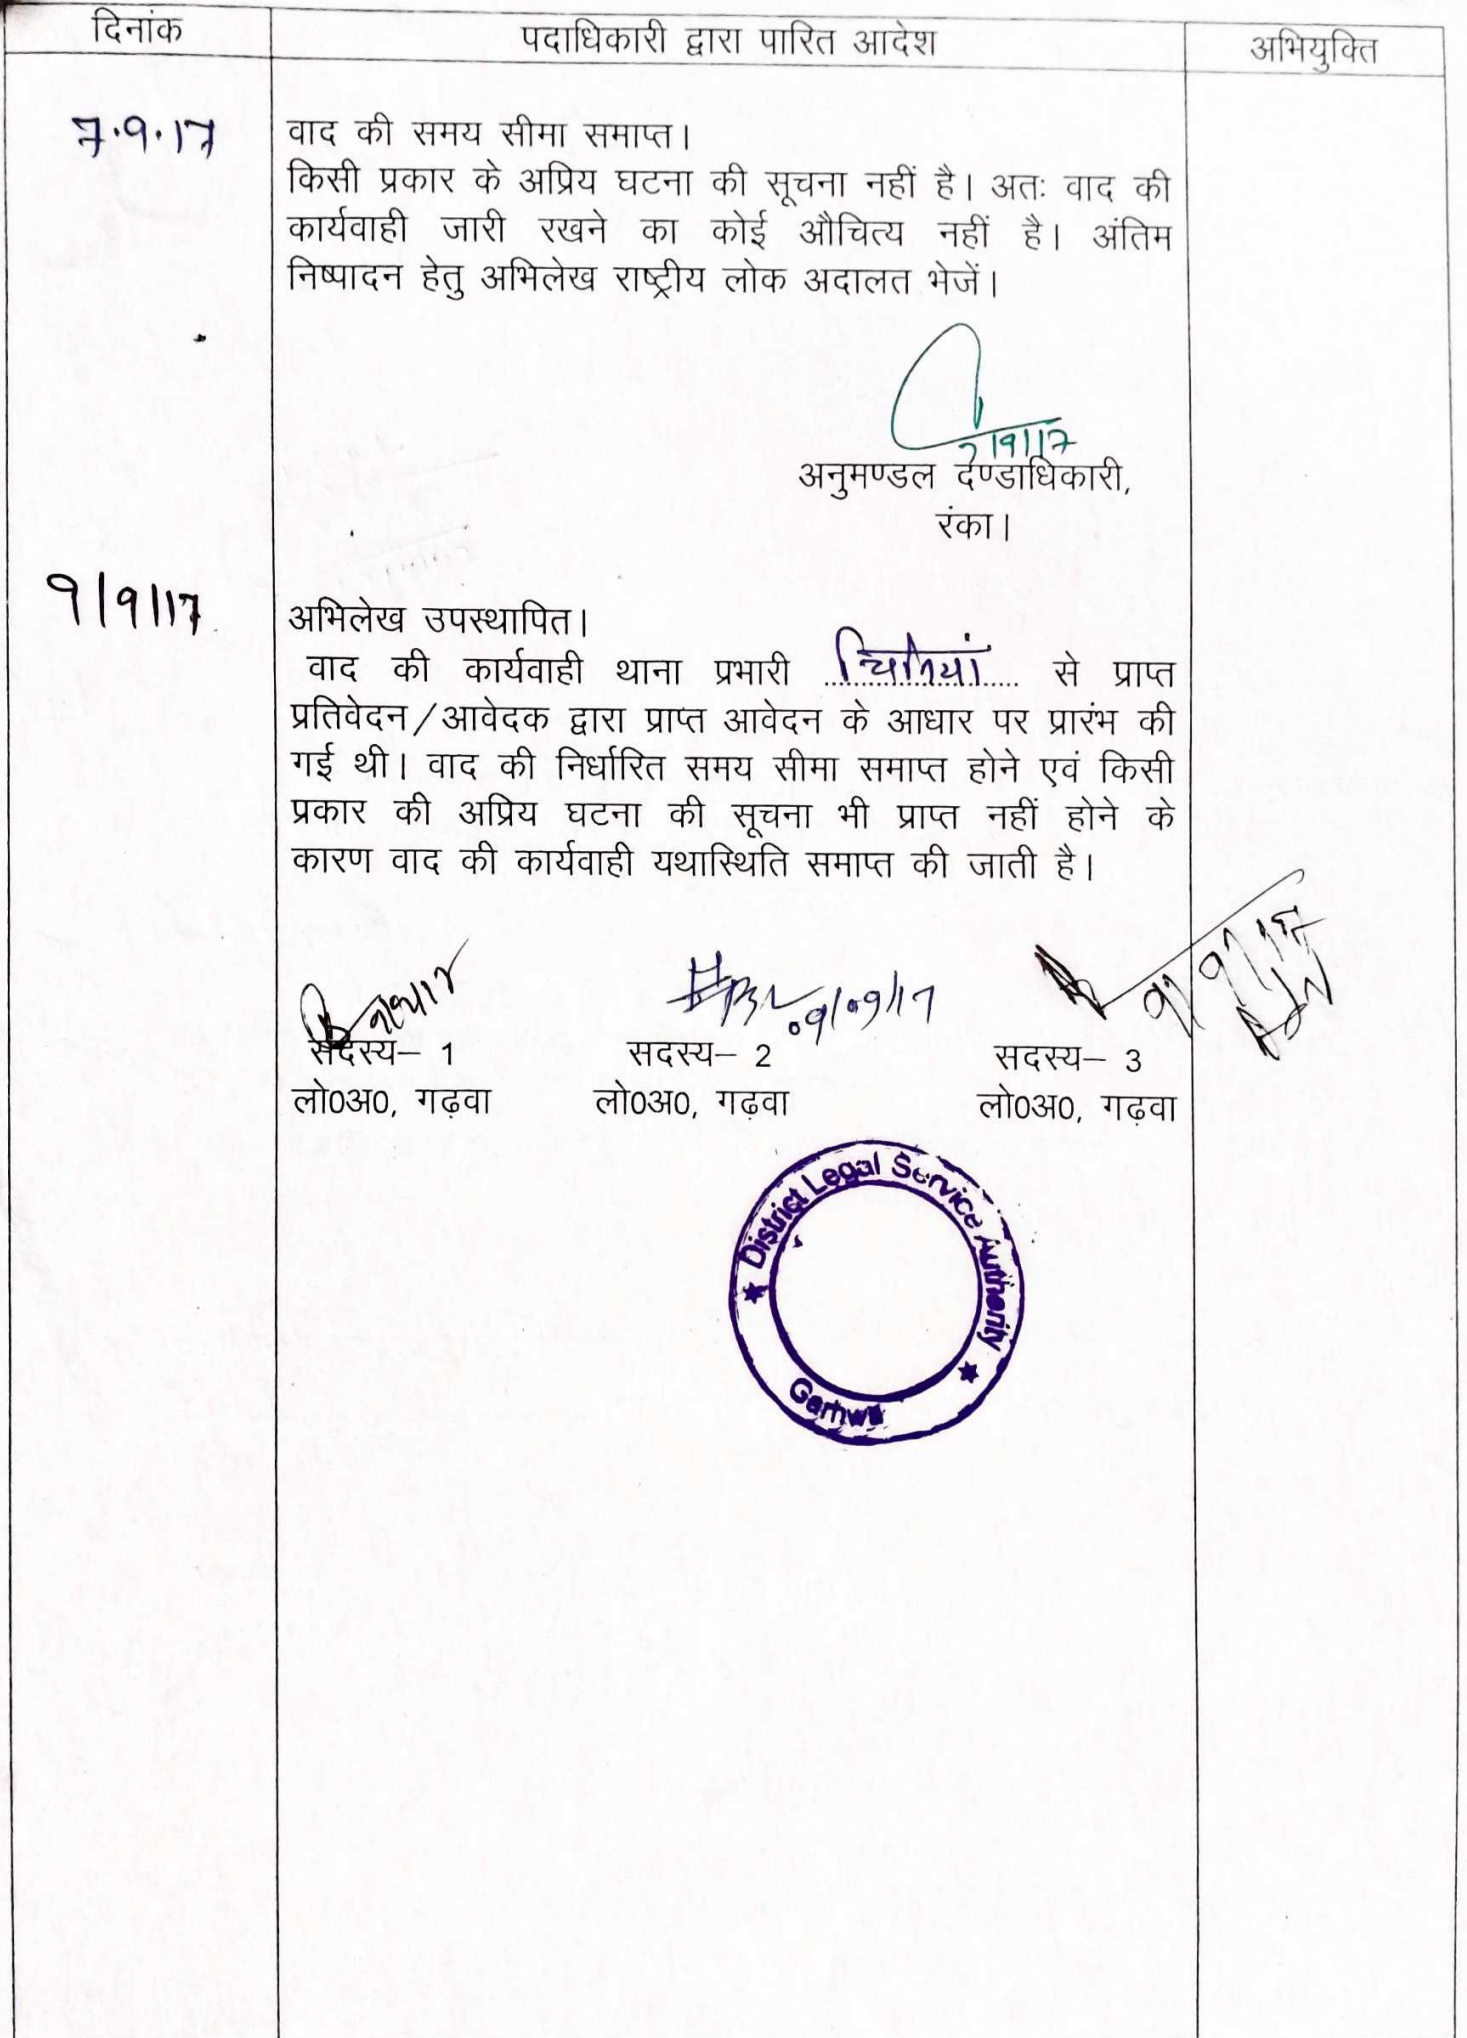 दिनांक
पदाधिकारी द्वारा पारित आदेश
अभियुक्ति
7.9.17
वाद की समय सीमा समाप्त।
किसी प्रकार के अप्रिय घटना की सूचना नहीं है। अतः वाद की
कार्यवाही जारी रखने का कोई औचित्य नहीं है। अंतिम
निष्पादन हेतु अभिलेख राष्ट्रीय लोक अदालत भेजें।
7/9/17
अनुमण्डल दण्डाधिकारी,
रंका।
9/9/17
अभिलेख उपस्थापित।
वाद की कार्यवाही थाना प्रभारी चिनियां से प्राप्त
प्रतिवेदन/आवेदक द्वारा प्राप्त आवेदन के आधार पर प्रारंभ की
गई थी। वाद की निर्धारित समय सीमा समाप्त होने एवं किसी
प्रकार की अप्रिय घटना की सूचना भी प्राप्त नहीं होने के
कारण वाद की कार्यवाही यथास्थिति समाप्त की जाती है।
09/09/17
9/9/17
सदस्य– 1 सदस्य– 2 सदस्य– 3
लो0अ0, गढ़वा लो0अ0, गढ़वा लो0अ0, गढ़वा
★ District Legal Service Authority ★
Garhwa